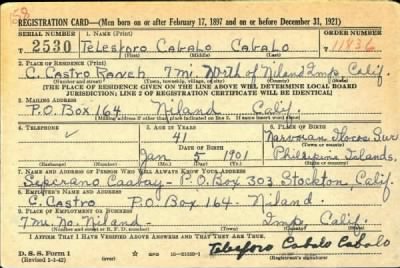 58
REGISTRATION CARD—(Men born on or after February 17, 1897 and on or before December 31, 1921)
SERIAL NUMBER 1. NAME (Print) ORDER NUMBER
T 2530 Telesforo Cabalo Cabalo 11836
(First) (Middle) (Last)
2. PLACE OF RESIDENCE (Print)
C. Castro Ranch 7 mi. North of Niland Imp. Calif.
(Number and street) (Town, township, village, or city) (County) (State)
[THE PLACE OF RESIDENCE GIVEN ON THE LINE ABOVE WILL DETERMINE LOCAL BOARD
JURISDICTION; LINE 2 OF REGISTRATION CERTIFICATE WILL BE IDENTICAL]
3. MAILING ADDRESS
P.O. Box 164 Niland Calif.
[Mailing address if other than place indicated on line 2. If same insert word same]
4. TELEPHONE 5. AGE IN YEARS 6. PLACE OF BIRTH
41
DATE OF BIRTH Sur
Jan 5 1901 Philippine Islands.
(Exchange) (Number) (Mo.) (Day) (Yr.) (State or country)
7. NAME AND ADDRESS OF PERSON WHO WILL ALWAYS KNOW YOUR ADDRESS
P.O. Box 303 Stockton, Calif.
8. EMPLOYER'S NAME AND ADDRESS
C. Castro P.O. Box 164 - Niland
9. PLACE OF EMPLOYMENT OR BUSINESS
7 mi. No. Niland - Imp. Calif.
(Number and street or R. F. D. number) (Town) (County) (State)
I AFFIRM THAT I HAVE VERIFIED ABOVE ANSWERS AND THAT THEY ARE TRUE.
D. S. S. Form 1 Telesforo Cabalo Cabalo
(Revised 1-1-42) (over) (Registrant's signature)